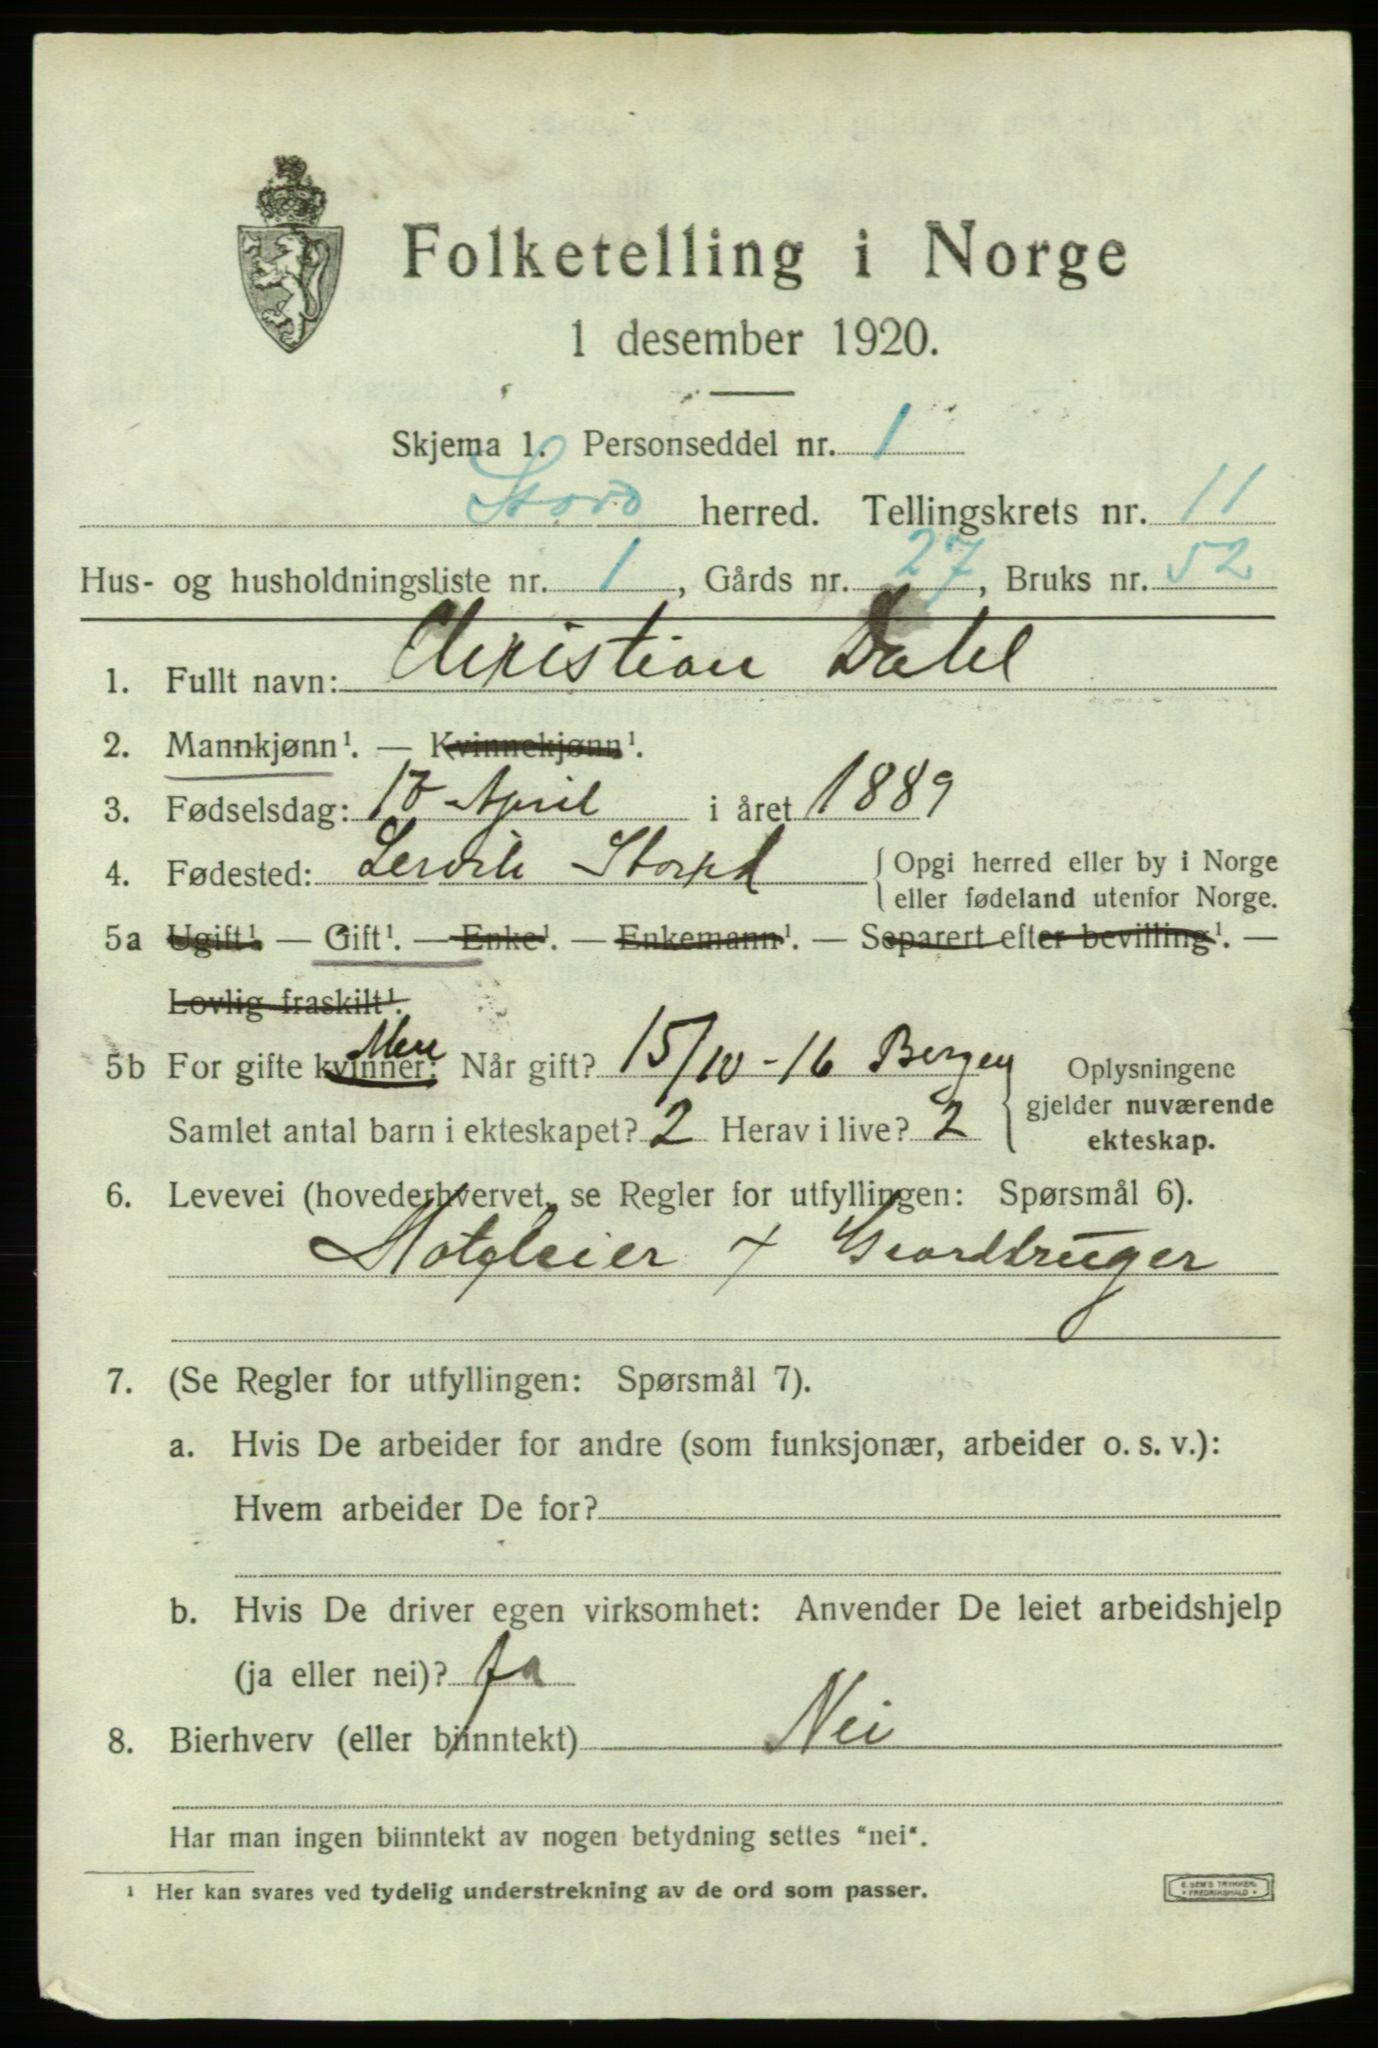 Folketelling i Norge
1 desember 1920.
Skjema 1. Personseddel nr. 1
Stord herred. Tellingskrets nr. 11
Hus- og husholdningsliste nr. 1, Gårds nr. 27, Bruks nr. 52
1. Fullt navn: Christian Dahl
2. Mannkjønn¹. — Kvinnekjønn¹.
3. Fødselsdag: April i året 1889
4. Fødested: Lervik Stord {Opgi herred eller by i Norge
eller fødeland utenfor Norge.
5a Ugift¹. — Gift¹. — Enke¹. — Enkemann¹. — Separert efter bevilling¹. —
Lovlig fraskilt¹.
5b For gifte kvinner: Men Når gift? 15/10-16 Bergen
Samlet antal barn i ekteskapet? 2 Herav i live? 2
Oplysningene
gjelder nuværende
ekteskap.
6. Levevei (hovederhvervet, se Regler for utfyllingen: Spørsmål 6).
+ Gaardbruger
7. (Se Regler for utfyllingen: Spørsmål 7).
a. Hvis De arbeider for andre (som funksjonær, arbeider o. s. v.):
Hvem arbeider De for?
b. Hvis De driver egen virksomhet: Anvender De leiet arbeidshjelp
(ja eller nei)? Ja
8. Bierhverv (eller biinntekt) Nei
Har man ingen biinntekt av nogen betydning settes "nei".
¹ Her kan svares ved tydelig understrekning av de ord som passer.
E. SEM'S TRYKKERI
• FREDRIKSHALD •